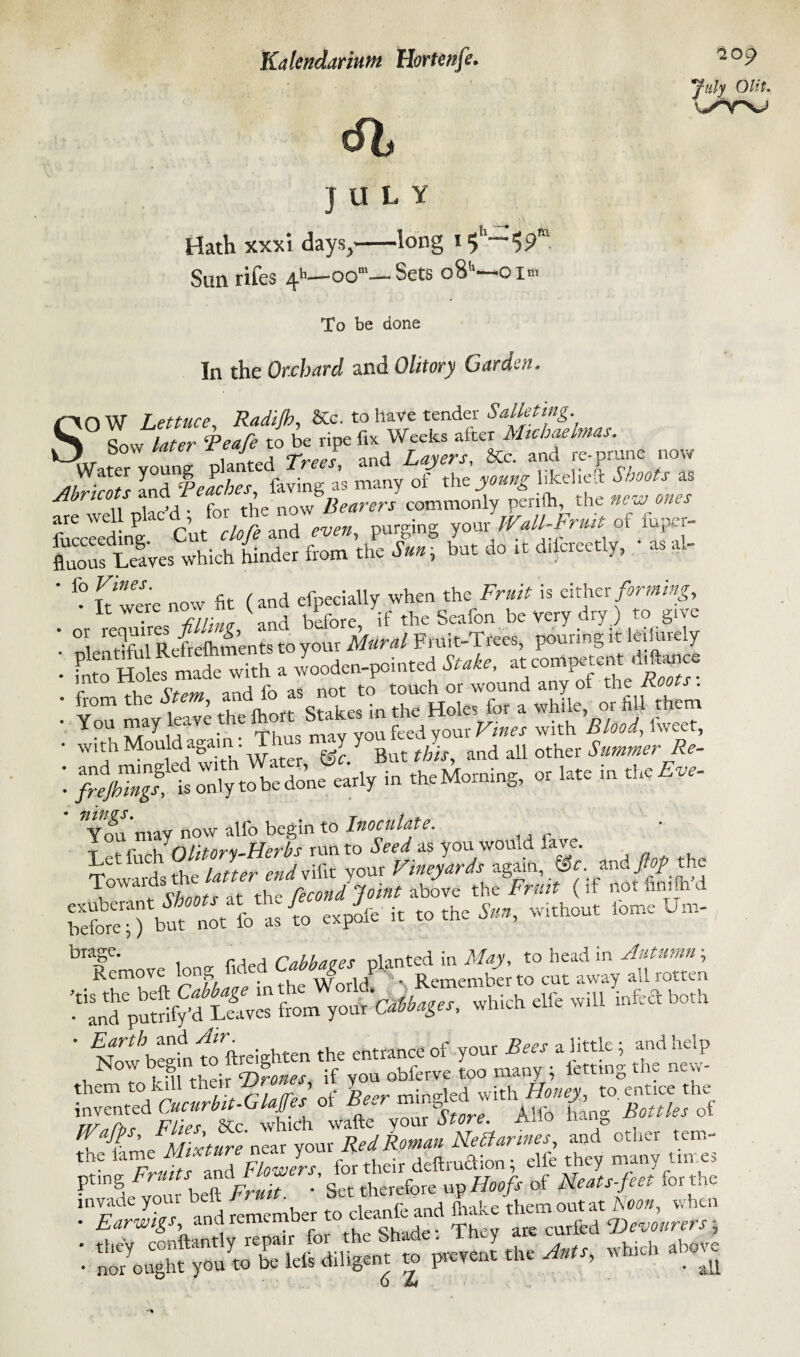 Kalendarium Hortenſe.
209
July Olit.
♌
JULY
Hath xxxi days,——long 15ʰ—59ᵐ
Sun riſes 4ʰ—00ᵐ—Sets 08ʰ—01ᵐ
To be done
In the Orchard and Olitory Garden.
SOW Lettuce, Radiſh, &c. to have tender Salleting.
Sow later Peaſe to be ripe ſix Weeks after Michaelmas.
Water young planted Trees, and Layers, &c. and re-prune now
Abricots and Peaches, ſaving as many of the young likelieſt Shoots as
are well plac'd; for the now Bearers commonly periſh, the new ones
ſucceeding. Cut cloſe and even, purging your Wall-Fruit of ſuper-
fluous Leaves which hinder from the Sun; but do it diſcreetly, · as al-
· ſo Vines.
· It were now fit (and eſpecially when the Fruit is either forming,
· or requires filling, and before, if the Seaſon be very dry) to give
· plentiful Refreſhments to your Mural Fruit-Trees, pouring it leiſurely
· into Holes made with a wooden-pointed Stake, at competent diſtance
· from the Stem, and ſo as not to touch or wound any of the Roots:
· You may leave the ſhort Stakes in the Holes for a while, or fill them
· with Mould again: Thus may you feed your Vines with Blood, ſweet,
· and mingled with Water, &c. But this, and all other Summer Re-
· freſhings, is only to be done early in the Morning, or late in the Eve-
· nings.
You may now alſo begin to Inoculate.
Let ſuch Olitory-Herbs run to Seed as you would ſave.
Towards the latter end viſit your Vineyards again, &c. and ſtop the
exuberant Shoots at the ſecond Joint above the Fruit (if not finiſh'd
before;) but not ſo as to expoſe it to the Sun, without ſome Um-
brage.
Remove long ſided Cabbages planted in May, to head in Autumn;
'tis the beſt Cabbage in the World. · Remember to cut away all rotten
· and putrify'd Leaves from your Cabbages, which elſe will infect both
· Earth and Air.
Now begin to ſtreighten the entrance of your Bees a little; and help
them to kill their Drones, if you obſerve too many; ſetting the new-
invented Cucurbit-Glaſſes of Beer mingled with Honey, to entice the
Waſps, Flies, &c. which waſte your Store. Alſo hang Bottles of
the ſame Mixture near your Red Roman Nectarines, and other tem-
pting Fruits and Flowers, for their deſtruction; elſe they many times
invade your beſt Fruit. · Set therefore up Hoofs of Neats-feet for the
· Earwigs, and remember to cleanſe and ſhake them out at Noon, when
· they conſtantly repair for the Shade: They are curſed Devourers;
· nor ought you to be leſs diligent to prevent the Ants, which above
6 Z
· all